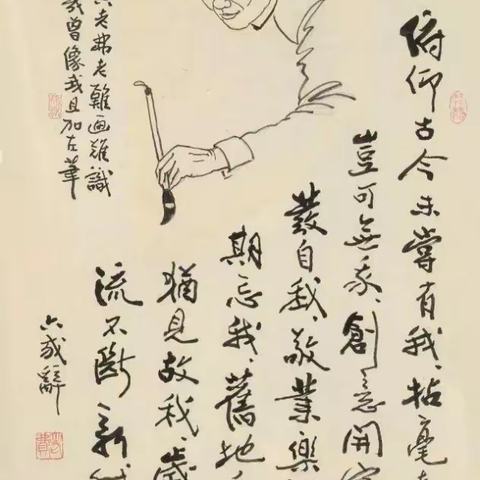 俯仰古今未嘗有我、拈毫
豈可無我、創意開
發自我、敬業樂
期忘我、舊地
猶見故我、歲
流不斷新
六我辭
老弗老難画難識
我曾像我且加左筆